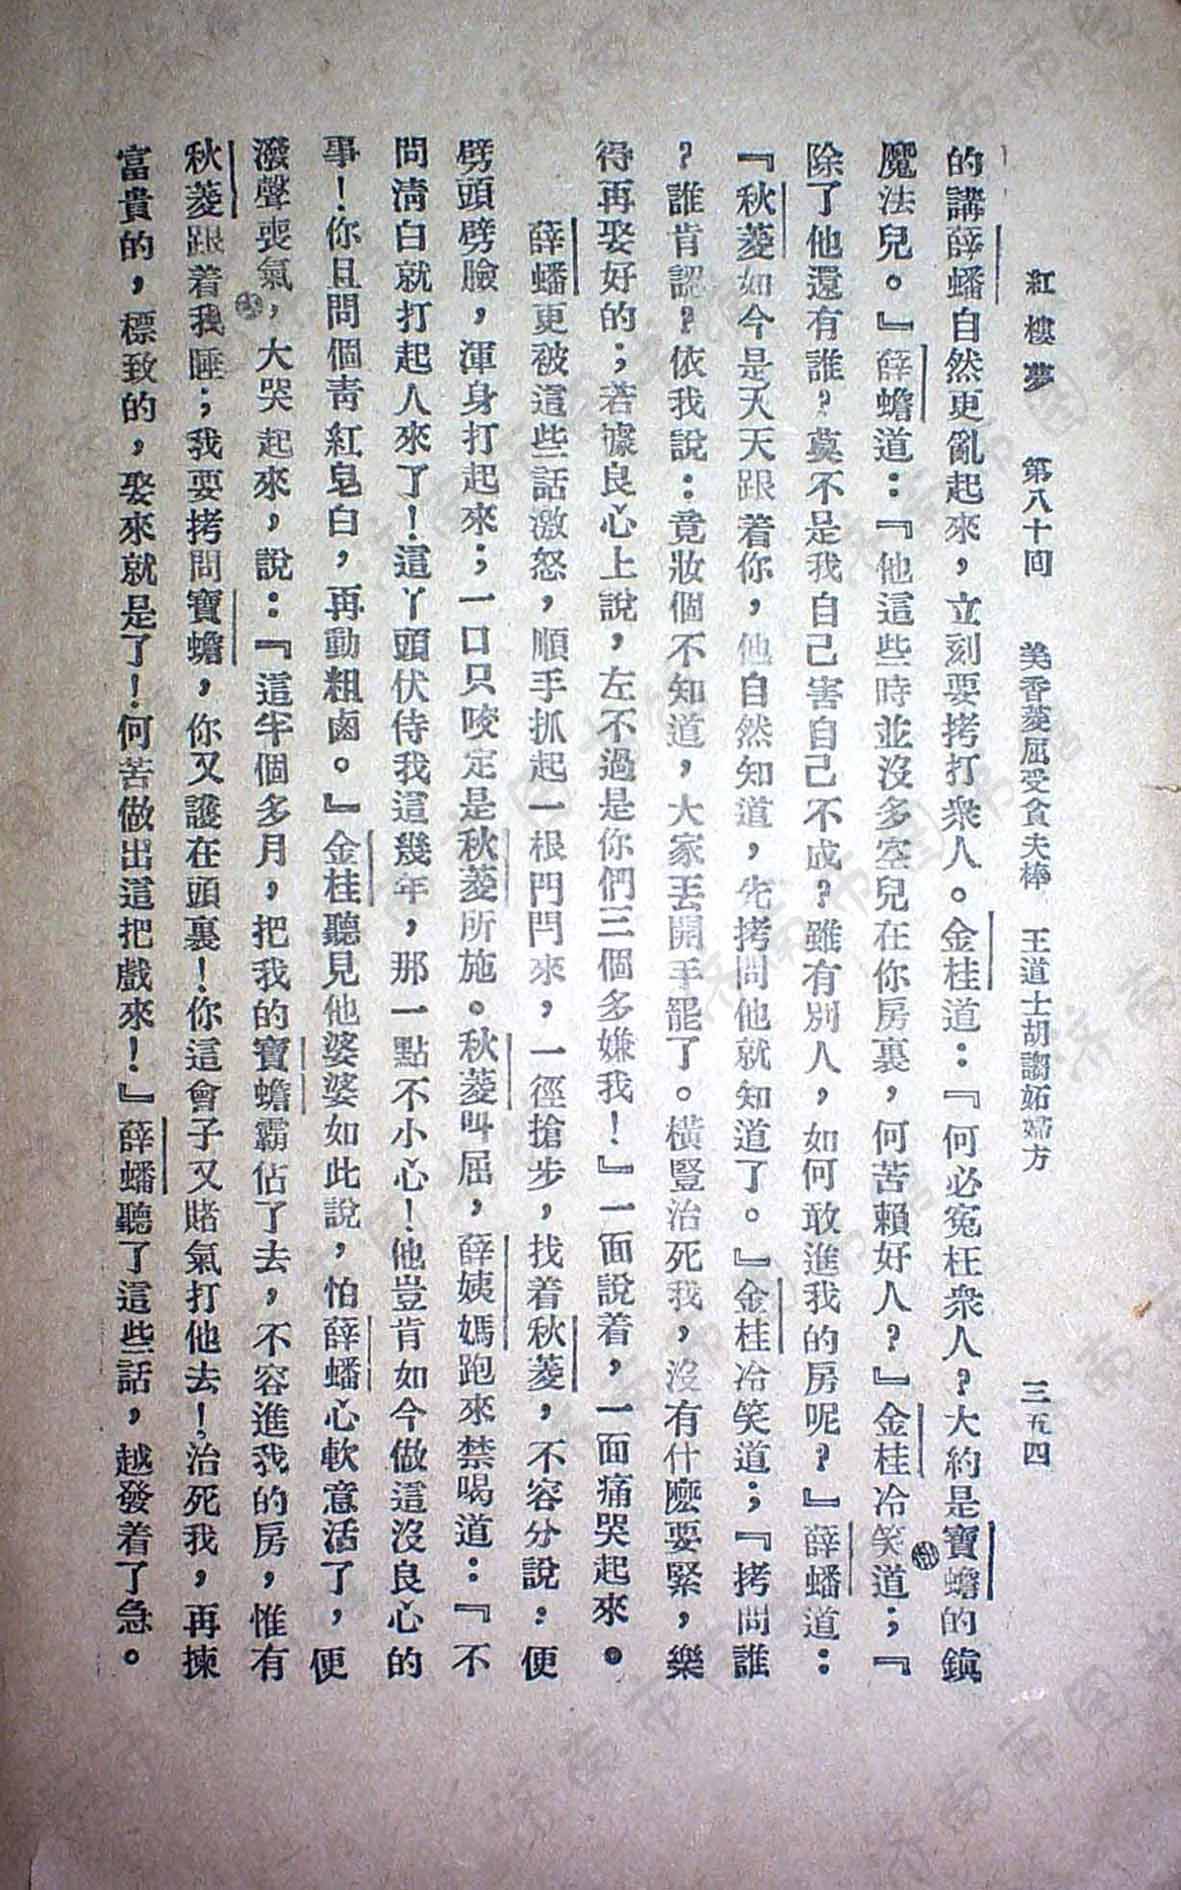 紅樓夢　第八十回　美香菱屈受貪夫棒　王道士胡謅妬婦方　三五四
的講薛蟠自然更亂起來，立刻要拷打衆人。金桂道：『何必冤枉衆人？大約是寶蟾的鎮
魔法兒。』薛蟠道：『他這些時並沒多空兒在你房裏，何苦賴好人？』金桂冷笑道；『
除了他還有誰？莫不是我自己害自己不成？雖有別人，如何敢進我的房呢？』薛蟠道：
『秋菱如今是天天跟着你，他自然知道，先拷問他就知道了。』金桂冷笑道；『拷問誰
？誰肯認？依我說：竟妝個不知道，大家丟開手罷了。橫豎治死我，沒有什麽要緊，樂
得再娶好的；若據良心上說，左不過是你們三個多嫌我！』一面說着，一面痛哭起來。
薛蟠更被這些話激怒，順手抓起一根門閂來，一徑搶步，找着秋菱，不容分說：便
劈頭劈臉，渾身打起來；一口只咬定是秋菱所施。秋菱叫屈，薛姨媽跑來禁喝道：『不
問清白就打起人來了！這丫頭伏侍我這幾年，那一點不小心！他豈肯如今做這沒良心的
事！你且問個青紅皂白，再動粗鹵。』金桂聽見他婆婆如此說，怕薛蟠心軟意活了，便
潑聲喪氣，大哭起來，說：『這半個多月，把我的寶蟾霸佔了去，不容進我的房，惟有
秋菱跟着我睡；我要拷問寶蟾，你又護在頭裏！你這會子又賭氣打他去！治死我，再揀
富貴的，標致的，娶來就是了！何苦做出這把戲來！』薛蟠聽了這些話，越發着了急。